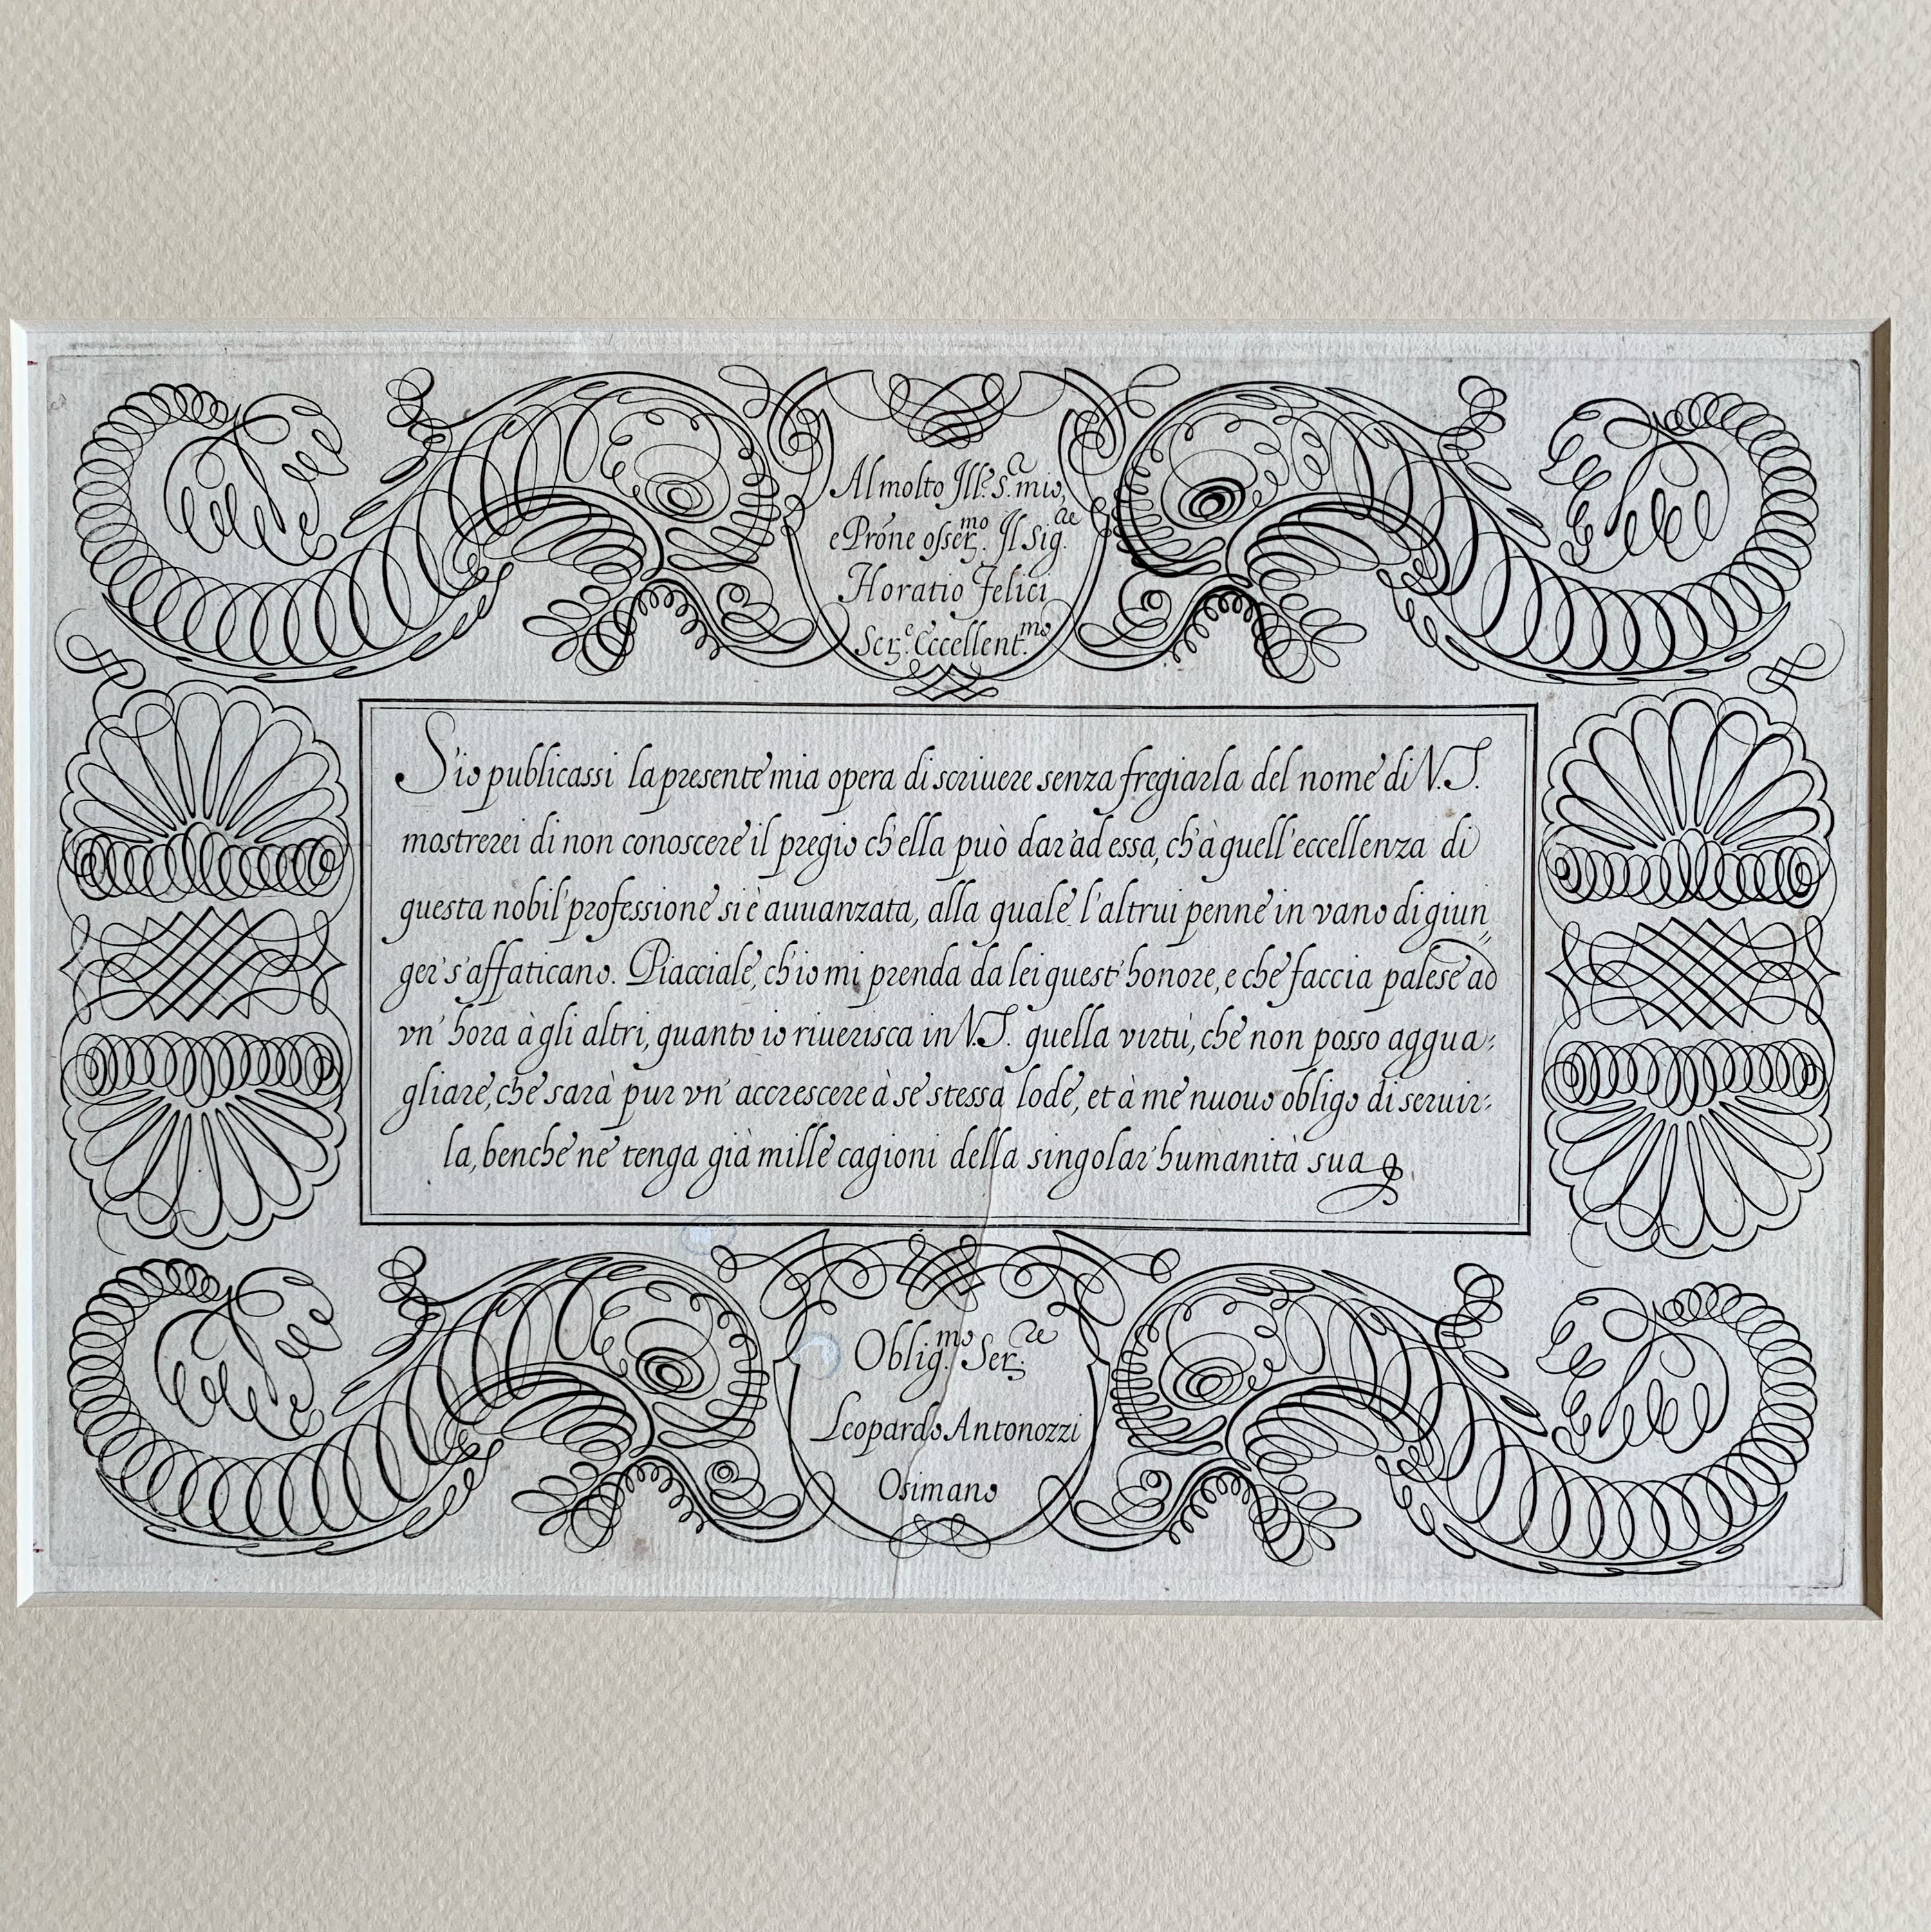 Al molto Ill.e S.r mio,
e Prone osser.mo Il Sig.re
Horatio Felici
Scr.e Eccellent.mo
S'io publicassi la presente mia opera di scriuere senza fregiarla del nome di V.S.
mostrerei di non conoscere il pregio ch'ella può dar'ad essa, ch'à quell'eccellenza di
questa nobil'professione si è auuanzata, alla quale l'altrui penne in vano di giun„
ger's'affaticano. Piacciale, ch'io mi prenda da lei quest'honore, e che faccia palese ad
vn'hora à gli altri, quanto io riuerisca in V.S. quella virtù, che non posso aggua-
gliare, che sarà pur vn'accrescere à se stessa lode, et à me nuouo obligo di seruir-
la, benche ne tenga già mille cagioni della singolar'humanità sua
Oblig.mo Ser.re
Leopardo Antonozzi
Osimano